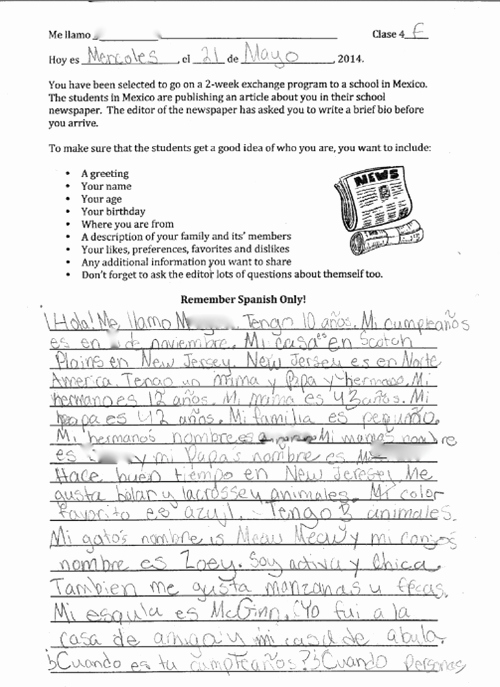 Me llamo
Clase 4 E
Hoy es Mercoles, el 21 de Mayo, 2014.
You have been selected to go on a 2-week exchange program to a school in Mexico.
The students in Mexico are publishing an article about you in their school
newspaper. The editor of the newspaper has asked you to write a brief bio before
you arrive.
To make sure that the students get a good idea of who you are, you want to include:
• A greeting
• Your name
• Your age
• Your birthday
• Where you are from
• A description of your family and its' members
• Your likes, preferences, favorites and dislikes
• Any additional information you want to share
• Don't forget to ask the editor lots of questions about themself too.
NEWS
Remember Spanish Only!
¡Hola! Me llamo M Tengo 10 años. Mi cumpleaños
es en de noviembre. Mi casa es en Scotch
Plains en New Jersey. New Jersey es en Norte
America. Tengo un mima y Papa y hermano. Mi
hermano es 12 años. Mi mama es 43 años. Mi
papa es 42 años. Mi familia es pequño.
Mi hermanos nombre es Mi mamas nombre
es y mi Papa's nombre es
Hace buen tiempo en New Jeresey. Me
gusta bolar y lacrosse y animales. Mi color
favorito es azujl. Tengo animales.
Mi gatos nombre is Meow Meow y mi conjos
nombre es Zoey. Soy activa y Chica.
Tambien me gusta manzanas y
Mi esqula es McGinn. Yo fui a la
casa de amiga y mi casa de abula.
¿Cuando es tu cumpleaños? ¿Cuando personas